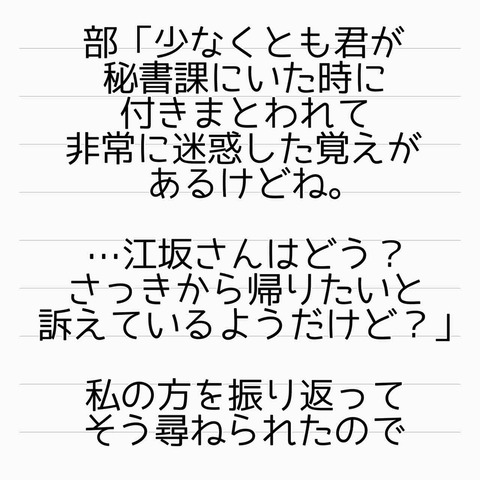 部「少なくとも君が
秘書課にいた時に
付きまとわれて
非常に迷惑した覚えが
あるけどね。
…江坂さんはどう？
さっきから帰りたいと
訴えているようだけど？」
私の方を振り返って
そう尋ねられたので